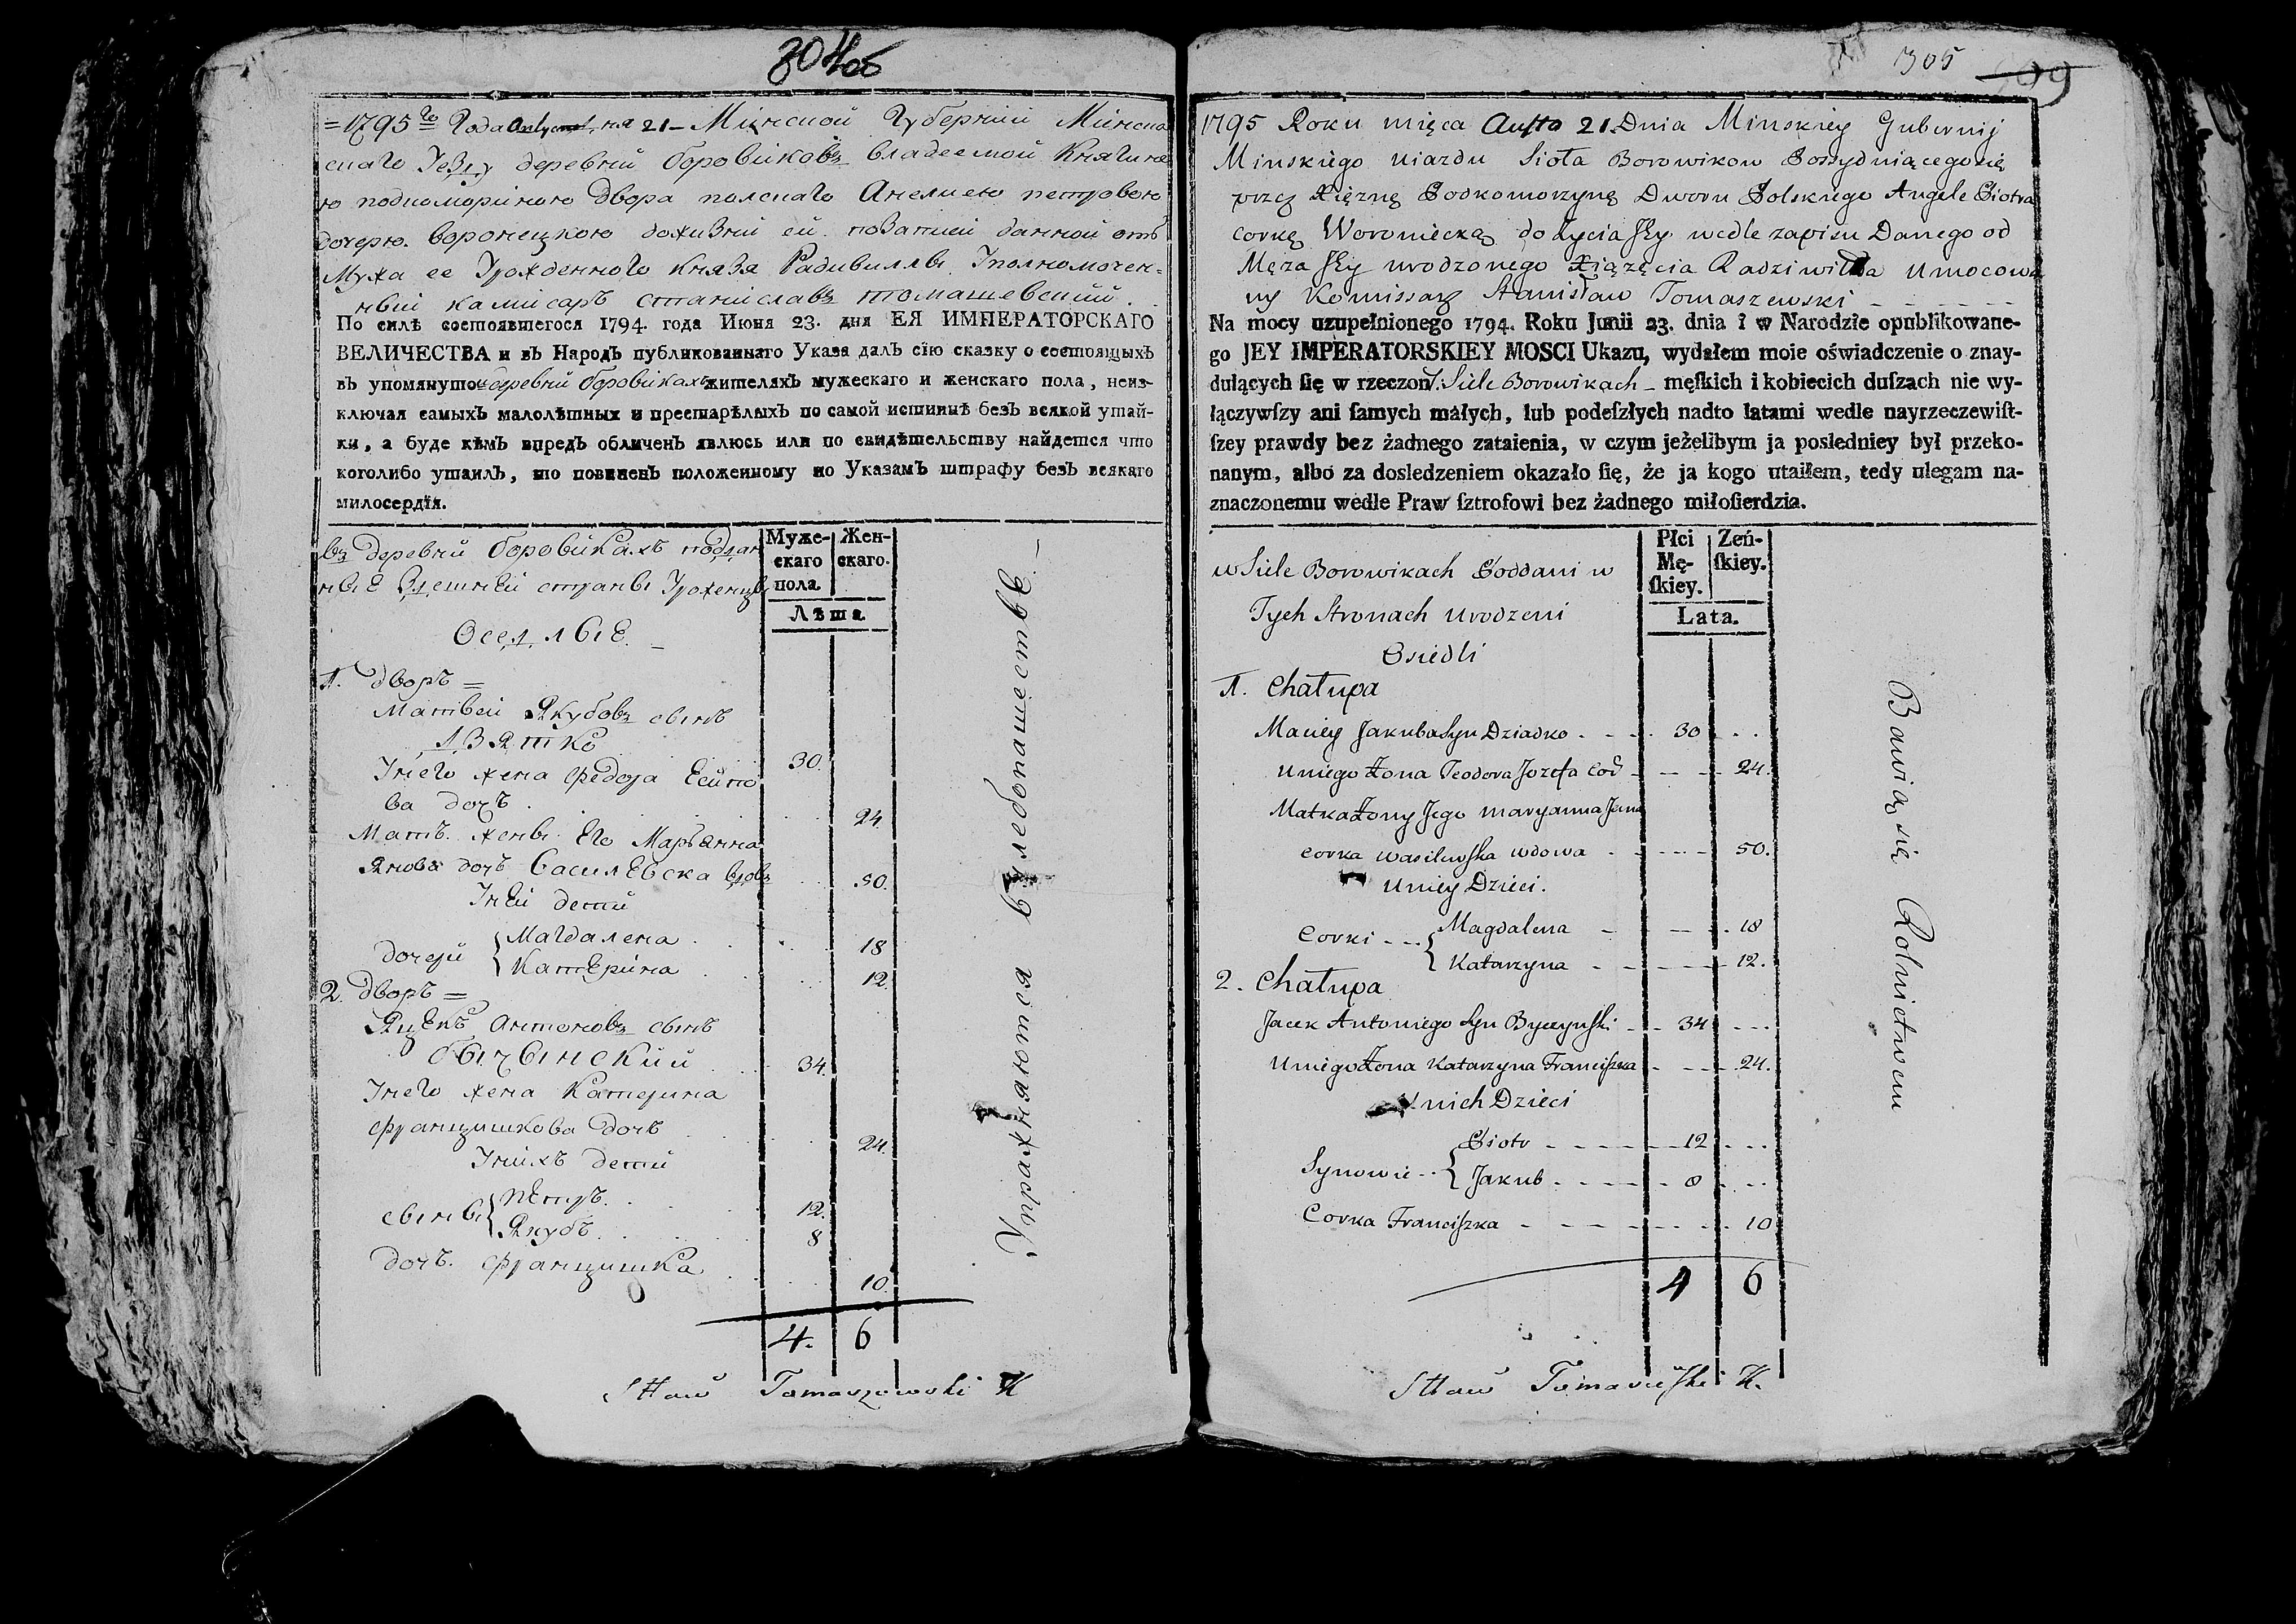 304об
=1795го Года Августа, на 21 - Минской Губернии Минска
скаго Уезду деревни боровиковъ владеемой Княгине
ю подкоморiною Двора полскаго Анелиею петровою
дочерю воронецкою доживнi ей позаписи данной отъ
Мужа ее Урожденного Князя Радивилла Уполномочен=
ный камисаръ станiславъ томашевский.
По силѣ состоявшегося 1794. года Июня 23. дня ЕЯ ИМПЕРАТОРСКАГО
ВЕЛИЧЕСТВА и въ Народъ публикованнаго Указа далъ сїю сказку о состоящыхъ
въ упомянутой деревни боровикахъ жителяхъ мужескаго и женскаго пола, неиз-
ключая самыхъ малолѣтных и престарѣлыхъ по самой истиннѣ безъ всякой утай-
ки, а буде кѣмъ впредъ обличенъ явлюсь или по свидѣтельству найдется что
коголибо утаилъ, то повиненъ положенному по Указамъ штрафу безъ всякаго
милосердїя.
въ деревни боровикахъ поддан
ные здешней страны Уроженцы
Оседлые. -
Муже-
скаго
пола
Жен-
скаго.
Лѣта.
1. дворъ =
Матвей Якубовъ сынъ
Дзятко 30.
Унего жена федора Есипо
ва дочъ. 24.
Матъ жены Его Марьянна
Янова дочъ василевска вдова 50.
Уней дети
дочери { Магдалена 18
Катерина 12.
2. дворъ =
Яцекъ антоновъ сынъ
бычынский 34.
Унего жена Катерина
францишкова дочъ 24.
Унихъ дети
сыны { петръ. 12.
Якубъ. 8
дочъ. францишка 10.
4. 6
Упражняются в хлебопашестве -
Sttaw Tomaszewski K
305
1795 Roku mięca Austa 21. Dnia Minskiey Gubernij
Minskiego uiazdu Sioła Borowikow Possydniącego się
przez Xięznę Podkomorzynę Dworu Polskiego Angele Piotra
corkę Woroniecką do życia Jey wedle zapisu Danego od
Męza Jey urodzonego Xiązęcia Radziwiłła Umocowa
ny Komissarz Stanisław Tomaszewski - - - - -
Na mocy uzupełnionego 1794. Roku Junii 23. dnia i w Narodzie opublikowane-
go JEY IMPERATORSKIEY MOSCI Ukazu, wydałem moie oświadczenie o znay-
duiących ſię w rzeczon. Siele Borowikach - męſkich i kobiecich duſzach nie wy-
łączywſzy ani ſamych małych, lub podeſzłych nadto latami wedle nayrzeczewiſt-
ſzey prawdy bez żadnego zataienia, w czym jeżelibym ja posledniey był przeko-
nanym, albo za dosledzeniem okazało ſię, że ja kogo utaiłem, tedy ulegam na-
znaczonemu wedle Praw ſztrofowi bez żadnego miłoſierdzia.
w Siele Borowikach Poddani w
Tych Stronach urodzeni
Osiedli
Płci
Mę-
ſkiey.
Zeń-
ſkiey.
Lata.
1. Chałupa
Maciey Jakuba Syn Dziadko - - - 30 - - -
Uniego Zona Teodora Jozefa Cor - - - - 24.
Matka Zony Jego maryanna Jana
corka Wasilewſka wdowa - - - - - 50.
Uniey Dzieci.
Corki - - - { Magdalena - - - - 18
Katarzyna - - - - - 12.
2. Chałupa
Jacek Antoniego Syn Byczynſki - - 34 - - -
Uniego Zona Katarzyna Franciſzka - - - - 24.
Unich Dzieci
Synowie - - { Piotr - - - - - 12 - - -
Jakub - - - - - 8 - - -
Corka Franciſzka - - - - - - - 10
4 6
Bawią się Rolnictwem
Sttaw Tomaszewſki K.